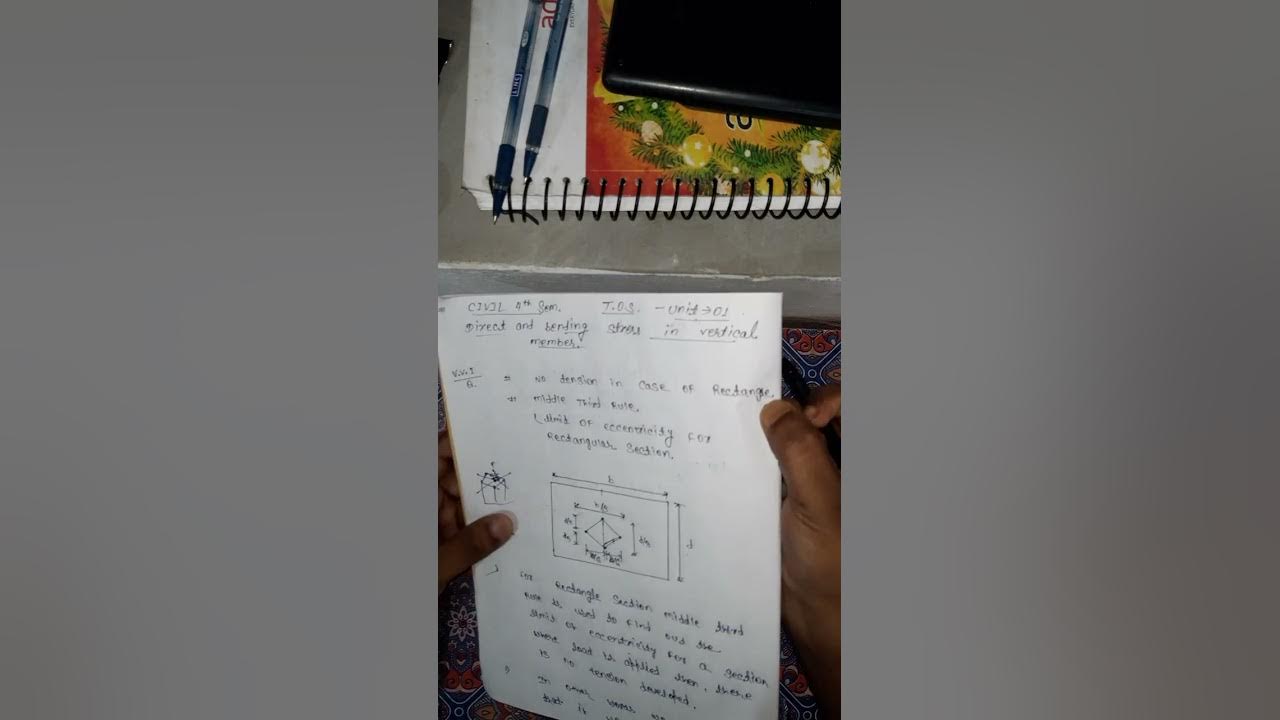 LINC
ad
a
CIVIL 4th Sem. T.O.S. - Unit → 01
Direct and bending stress in vertical
member.
V.V.I
Q.
No tension in case of Rectangle
middle Third Rule.
Limit of eccentricity For
Rectangular Section.
b
d
For Rectangle Section middle third
Rule is used to find out the
limit of eccentricity for a section
where load is applied then, there
is no tension developed.
In other words we
that it